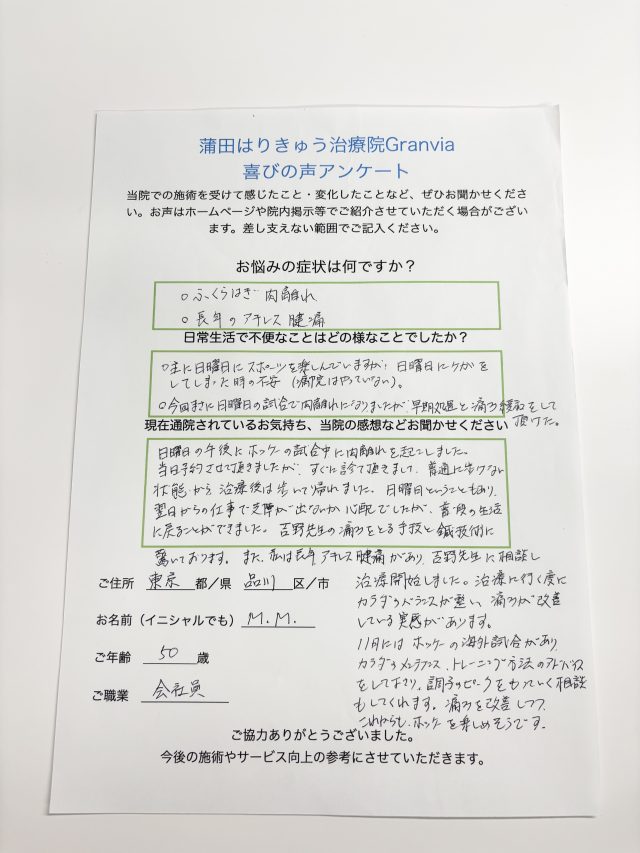 蒲田はりきゅう治療院Granvia
喜びの声アンケート
当院での施術を受けて感じたこと・変化したことなど、ぜひお聞かせくださ
い。お声はホームページや院内掲示等でご紹介させていただく場合がござい
ます。差し支えない範囲でご記入ください。
お悩みの症状は何ですか？
○ふくらはぎ 肉離れ
○長年のアキレス腱痛
日常生活で不便なことはどの様なことでしたか？
○主に日曜日にスポーツを楽しんでいますが、日曜日にケガを
してしまった時の不安（病院はやっていない）。
○今回まさに日曜日の試合で肉離れになりましたが、早期処置と痛み緩和をして
頂けた。
現在通院されているお気持ち、当院の感想などお聞かせください
日曜日の午後にホッケーの試合中に肉離れを起こしました。
当日予約させて頂きましたが、すぐに診て頂きまして、普通に歩けない
状態から治療後は歩いて帰れました。日曜日ということもあり、
翌日からの仕事で支障が出ないか心配でしたが、普段の生活
に戻ることができました。吉野先生の痛みをとる手技と鍼技術に
驚いております。また、私は長年アキレス腱痛があり、吉野先生に相談し
治療開始しました。治療に行く度に
カラダのバランスが整い、痛みが改善
している実感があります。
11月にはホッケーの海外試合があり、
カラダのメンテナンス、トレーニング方法のアドバイス
をして下さり、調子のピークをもっていく相談
もしてくれます。痛みを改善しつつ、
これからもホッケーを楽しめそうです。
ご住所 東京 都／県 品川 区／市
お名前（イニシャルでも） M.M.
ご年齢 50 歳
ご職業 会社員
ご協力ありがとうございました。
今後の施術やサービス向上の参考にさせていただきます。